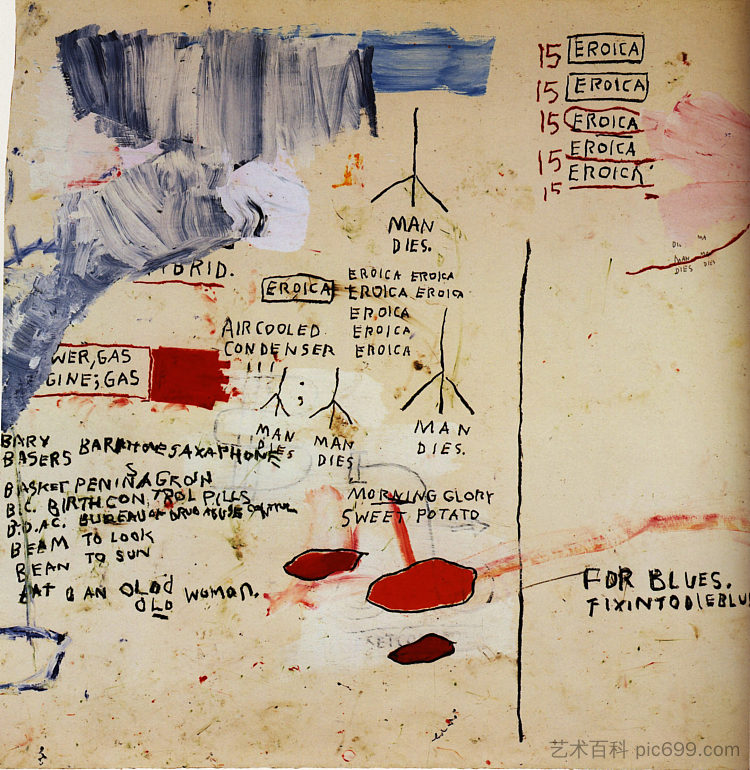 15 EROICA
15 EROICA
15 EROICA
15 EROICA
15 EROICA
MAN
DIES.
MAN
DIES
DIES
BRID.
EROICA
EROICA EROICA
EROICA EROICA
EROICA
EROICA
EROICA
AIR COOLED
CONDENSER
WER, GAS
GINE; GAS
;
MAN
DIES
MAN
DIES
MAN
DIES.
BARY BARITONE SAXAPHONE
BASERS
BASKET PENINAGROIN
B.C. BIRTH CONTROL PILLS
B.D.A.C. BUREAU OF DRUG ABUSE CONTROL
BEAM TO LOOK
BEAN TO SUN
BAT O AN OLOD WOMAN.
OLD
MORNING GLORY
SWEET POTATO
FOR BLUES.
FIXINTODIEBLU
艺术百科 pic699.com